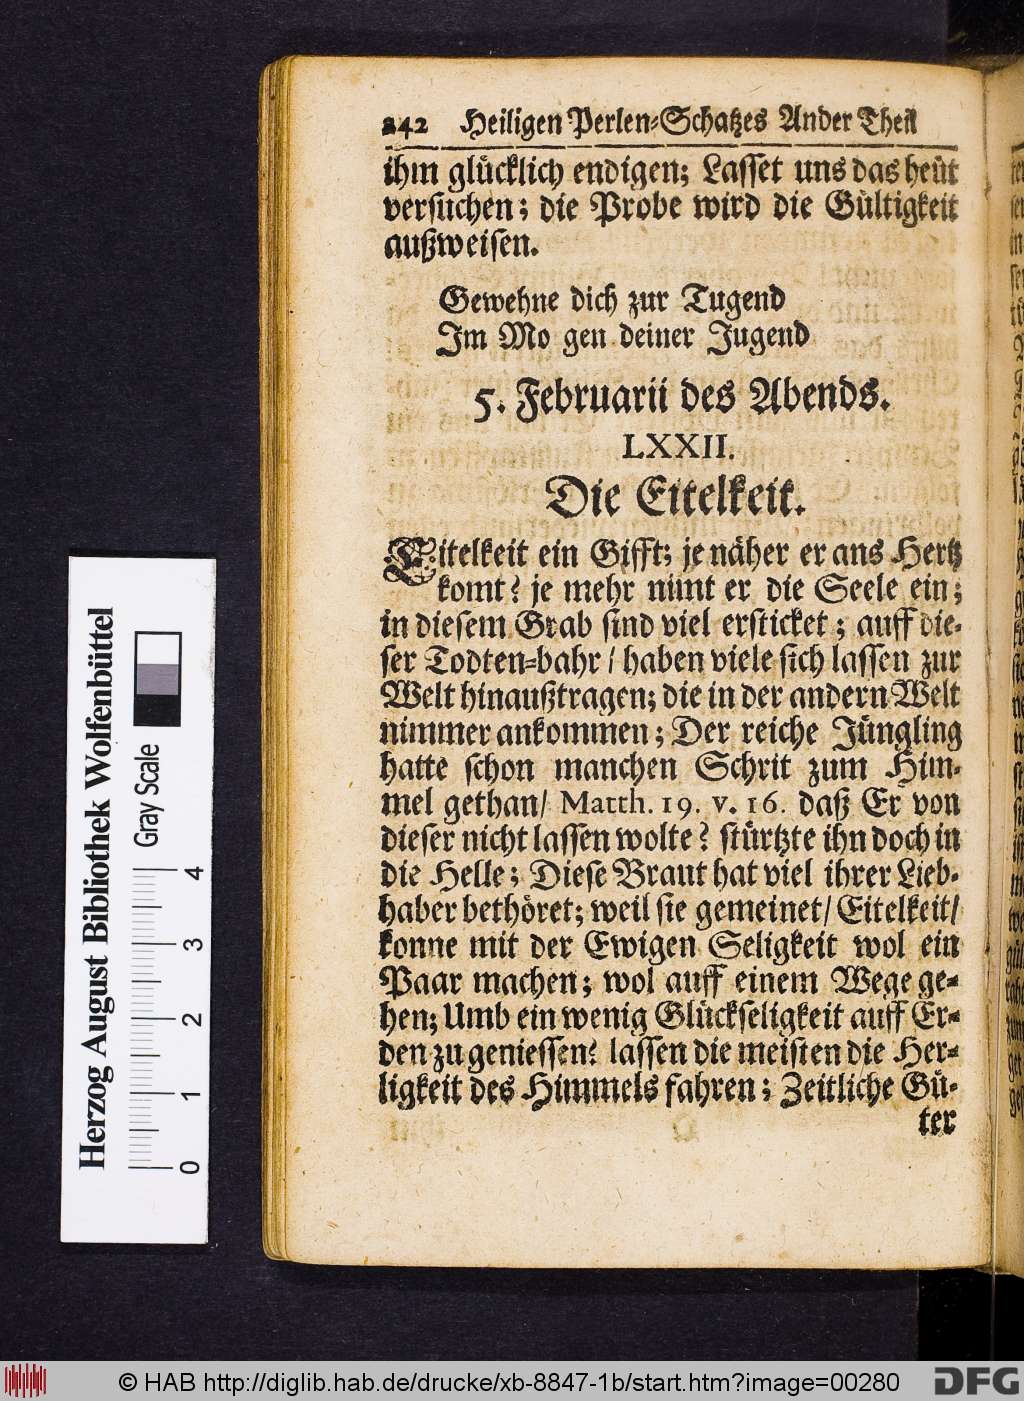 242 Heiligen Perlen-Schatzes Ander Theil
ihm glücklich endigen; Lasset uns das heut
versuchen; die Probe wird die Gültigkeit
außweisen.
Gewehne dich zur Tugend
Im Mo gen deiner Jugend
5. Februarii des Abends.
LXXII.
Die Eitelkeit.
Eitelkeit ein Gifft; je näher er ans Hertz
komt? je mehr nimt er die Seele ein;
in diesem Grab sind viel ersticket; auff die-
ser Todten-bahr / haben viele sich lassen zur
Welt hinaußtragen; die in der andern Welt
nimmer ankommen; Der reiche Jüngling
hatte schon manchen Schrit zum Him-
mel gethan/ Matth. 19. v. 16. daß Er von
dieser nicht lassen wolte? stürtzte ihn doch in
die Helle; Diese Braut hat viel ihrer Lieb-
haber bethöret; weil sie gemeinet/ Eitelkeit/
konne mit der Ewigen Seligkeit wol ein
Paar machen; wol auff einem Wege ge-
hen; Umb ein wenig Glückseligkeit auff Er-
den zu geniessen? lassen die meisten die Her-
ligkeit des Himmels fahren; Zeitliche Gü-
ter
Herzog August Bibliothek Wolfenbüttel
Gray Scale
0 1 2 3 4
© HAB http://diglib.hab.de/drucke/xb-8847-1b/start.htm?image=00280
DFG